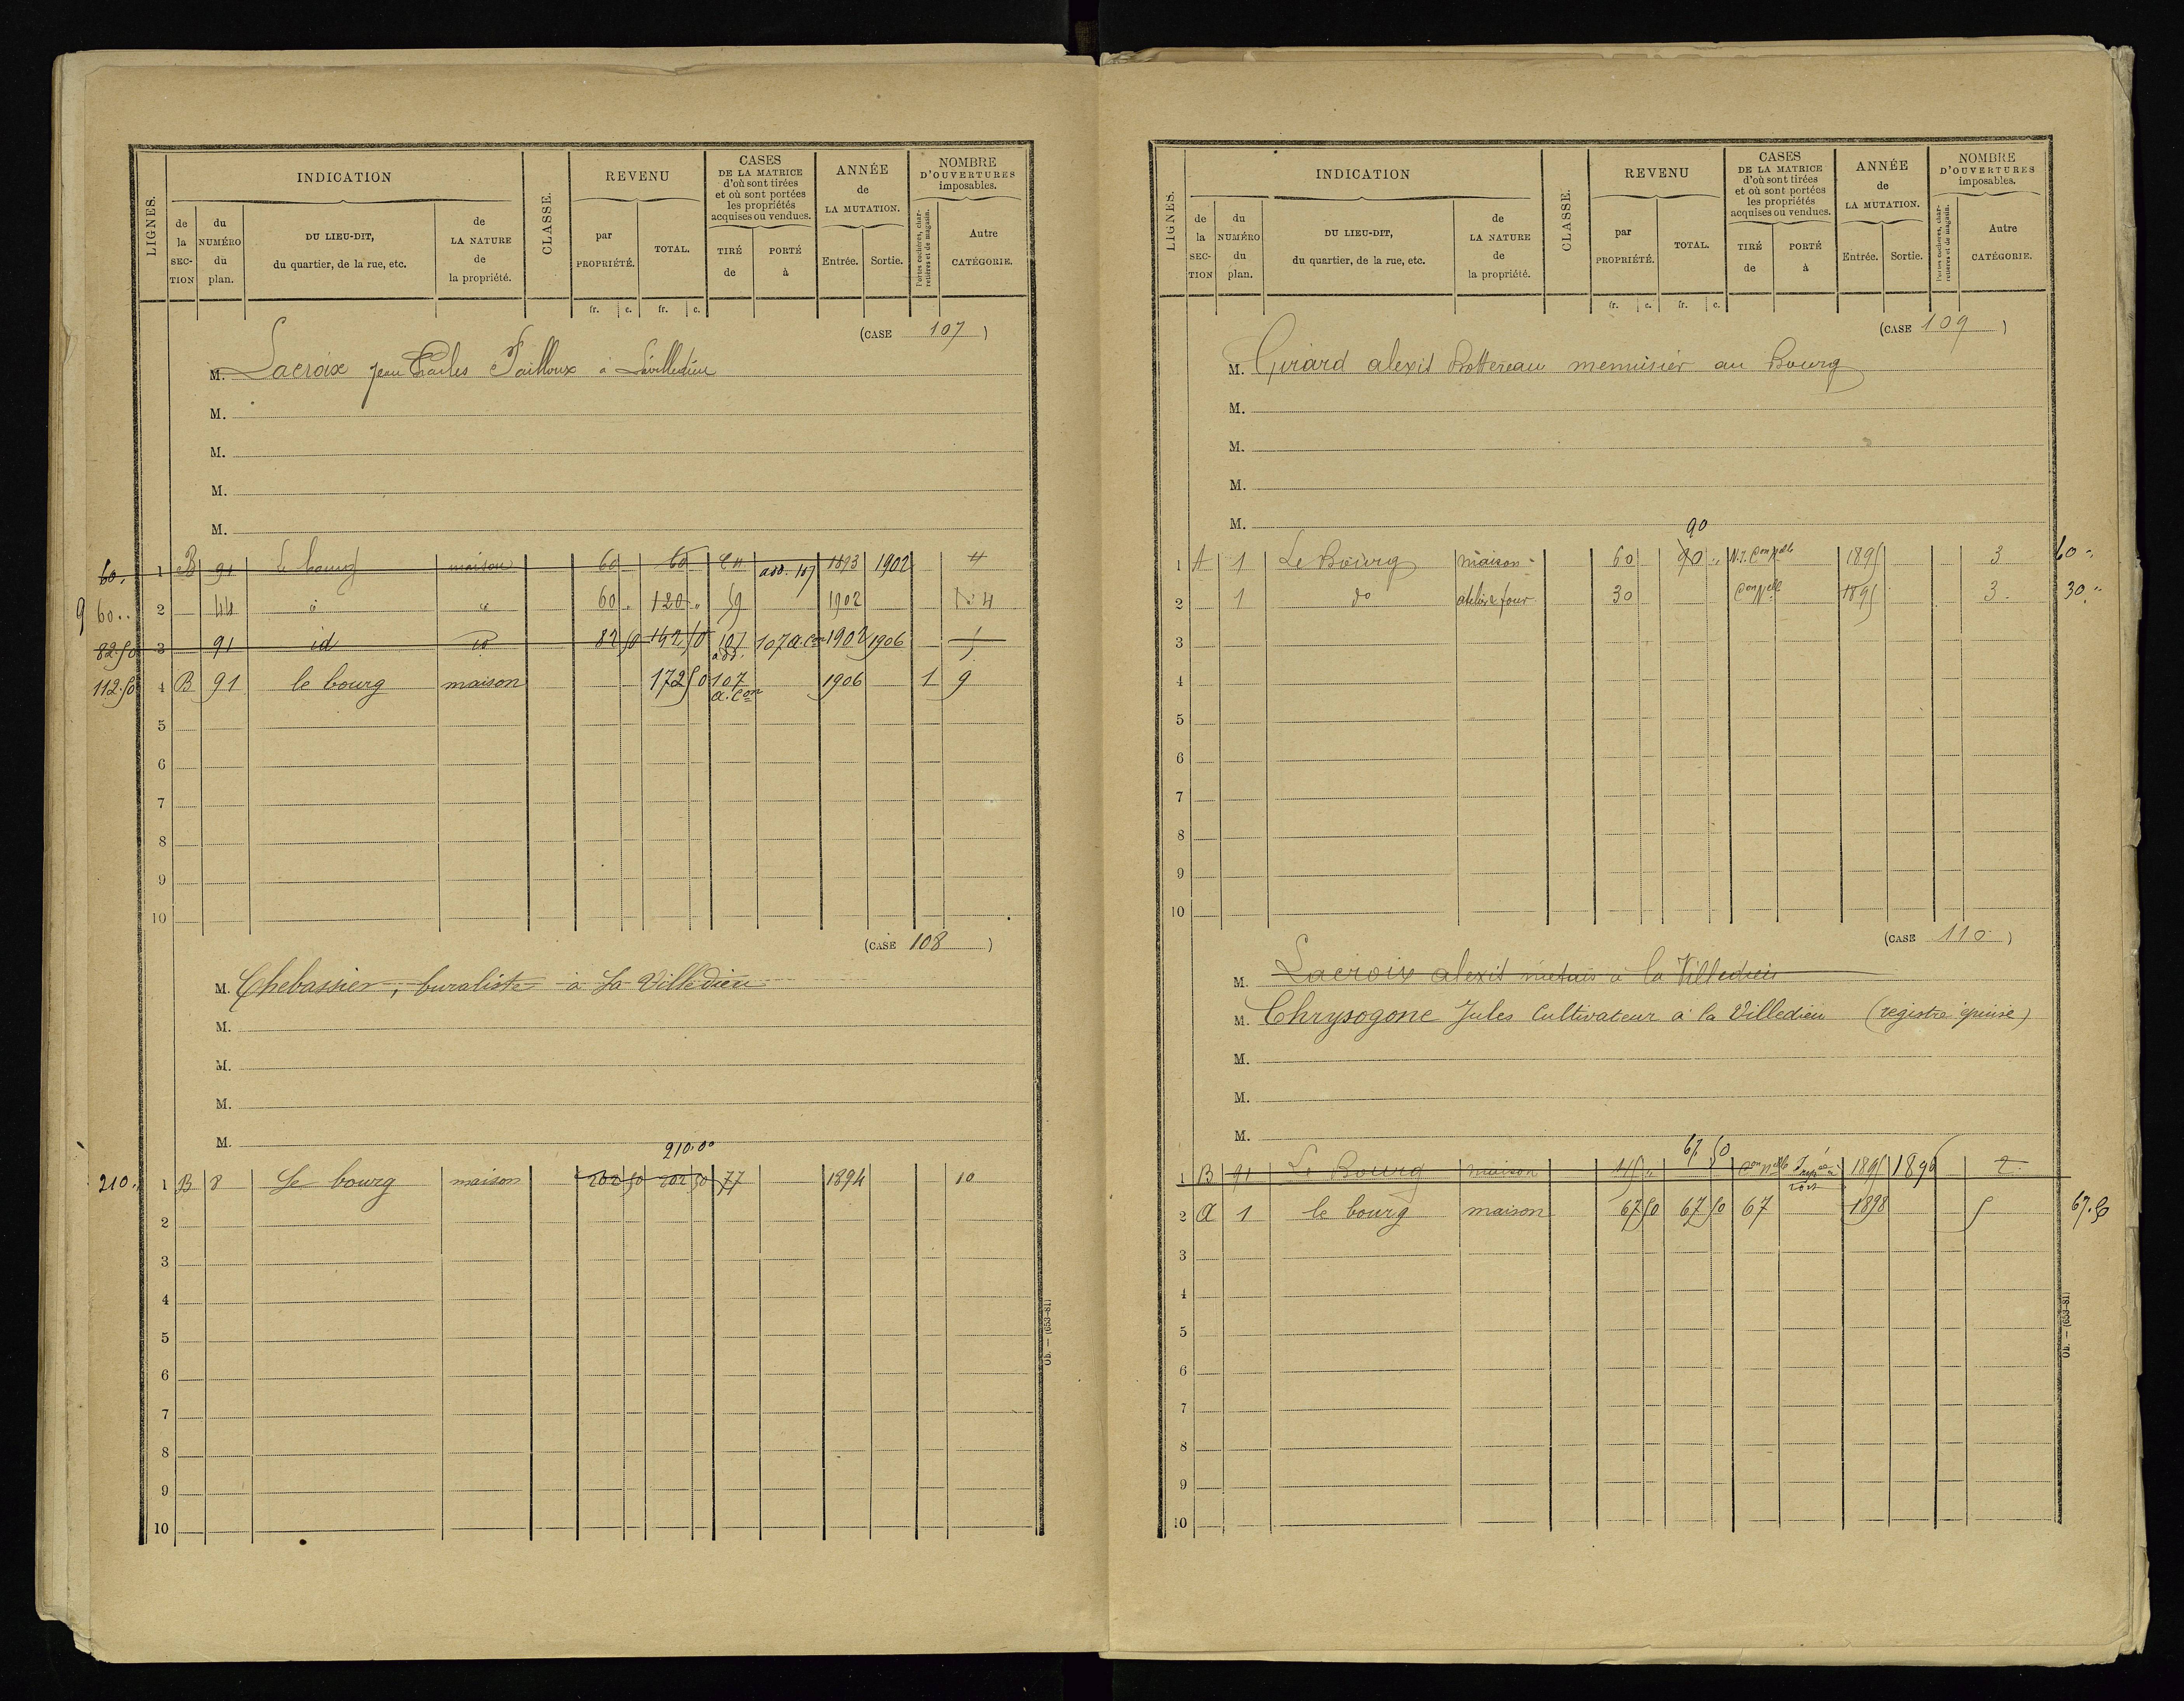 LIGNES.
INDICATION
de la SECTION
du NUMÉRO du plan.
DU LIEU-DIT, du quartier, de la rue, etc.
de LA NATURE de la propriété.
CLASSE.
REVENU
par PROPRIÉTÉ.
TOTAL.
fr. c. fr. c.
CASES DE LA MATRICE d'où sont tirées et où sont portées les propriétés acquises ou vendues.
TIRÉ de
PORTÉ à
ANNÉE de LA MUTATION.
Entrée. Sortie.
NOMBRE D'OUVERTURES imposables.
Portes cochères, charretières et de magasin.
Autre CATÉGORIE.
(CASE 107)
M. Lacroix Jean Charles Tailloux à Lavilledieu
M.
M.
M.
M.
60. 1 B 91 Le bourg maison 60 60 add. 107 1893 1902 4
9 60.. 2 44 60 120 59 1902 4
82.50 3 91 id id 82 50 142 50 107 add. 107 a. con 1902 1906
112.50 4 B 91 le bourg maison 172 50 107 a. con 1906 1 9
5
6
7
8
9
10
(CASE 108)
M. Chebassier, buraliste à La Villedieu
M.
M.
M.
M.
210.00
210.. 1 B 8 Le bourg maison 202 50 202 50 77 1894 10
2
3
4
5
6
7
8
9
10
Ob. — (653-81)
LIGNES.
INDICATION
de la SECTION
du NUMÉRO du plan.
DU LIEU-DIT, du quartier, de la rue, etc.
de LA NATURE de la propriété.
CLASSE.
REVENU
par PROPRIÉTÉ.
TOTAL.
fr. c. fr. c.
CASES DE LA MATRICE d'où sont tirées et où sont portées les propriétés acquises ou vendues.
TIRÉ de
PORTÉ à
ANNÉE de LA MUTATION.
Entrée. Sortie.
NOMBRE D'OUVERTURES imposables.
Portes cochères, charretières et de magasin.
Autre CATÉGORIE.
(CASE 109)
M. Girard alexis Bottereau menuisier au Bourg
M.
M.
M.
M.
90
1 A 1 Le Bourg maison 60 90 Con nelle 1895 3 60 "
2 1 do atelier & four 30 Con nelle 1895 3. 30. "
3
4
5
6
7
8
9
10
(CASE 110)
M. Lacroix alexis à la Villedieu
M. Chrysogone Jules Cultivateur à la Villedieu (registre épuisé)
M.
M.
M.
67 50
1 B 91 Le Bourg maison 45 Con nelle 1895 1896 2
2 A 1 le bourg maison 67 50 67 50 67 1898 5 67.50
3
4
5
6
7
8
9
10
Ob. — (653-81)